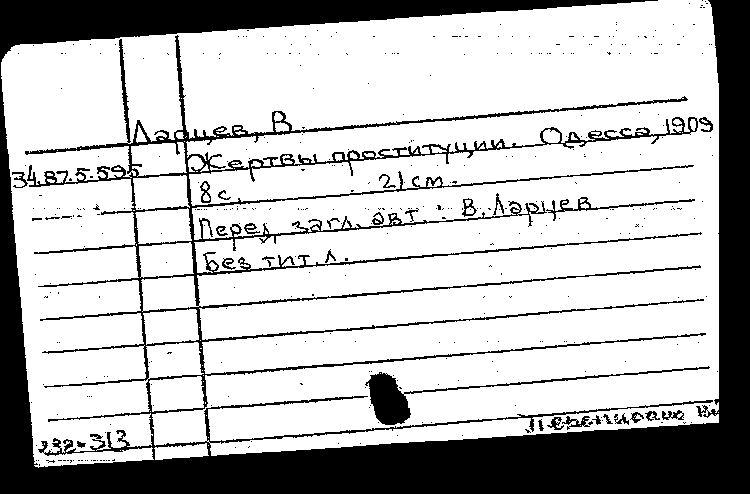 Ларцев, В.
34.87.5.595 Жертвы проституции. Одесса, 1909
8 с. 21 см.
Перед загл. авт.: В. Ларцев
Без тит. л.
232-313